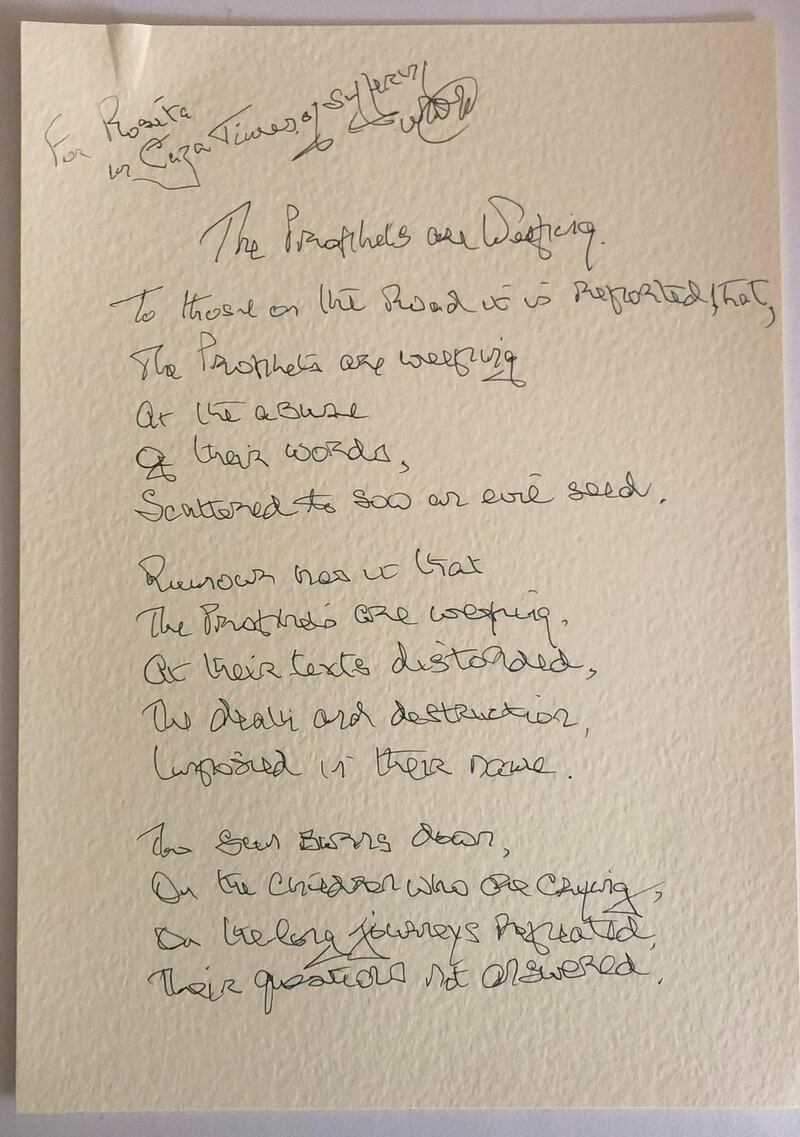 For Rosita
in Crazy Times of Suffering
The Prophets are Weeping.
To those on the Road it is Reported, that,
The Prophets are weeping
At the abuse
Of their words,
Scattered to sow an evil seed.
Rumour has it that
The Prophets are weeping,
At their texts distorted,
The death and destruction,
Imposed in their name.
The sun burns down,
On the children who are crying,
On the long journeys repeated,
Their questions not answered.